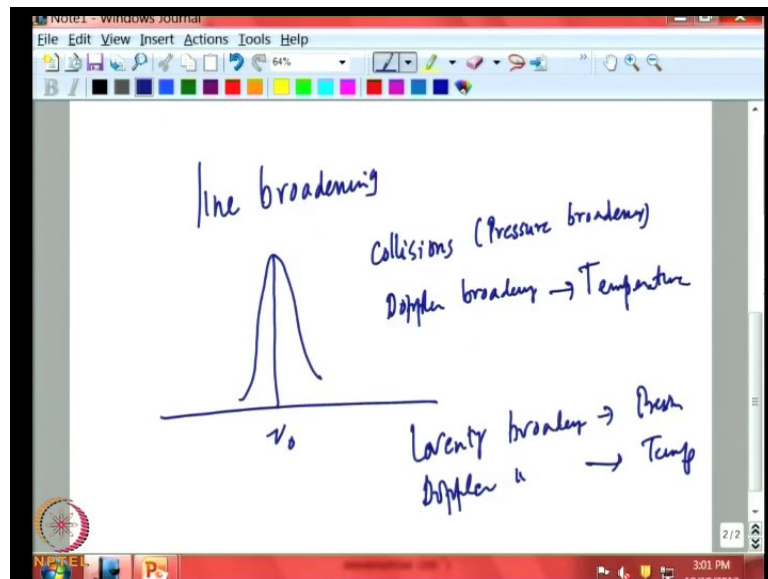 Note1 - Windows Journal
File Edit View Insert Actions Tools Help
64%
B I
line broadening
Collisions (Pressure broadening)
Doppler broadening → Temperature
ν₀
Lorentz broadening → Press
Doppler " → Temp
2/2
NPTEL
3:01 PM